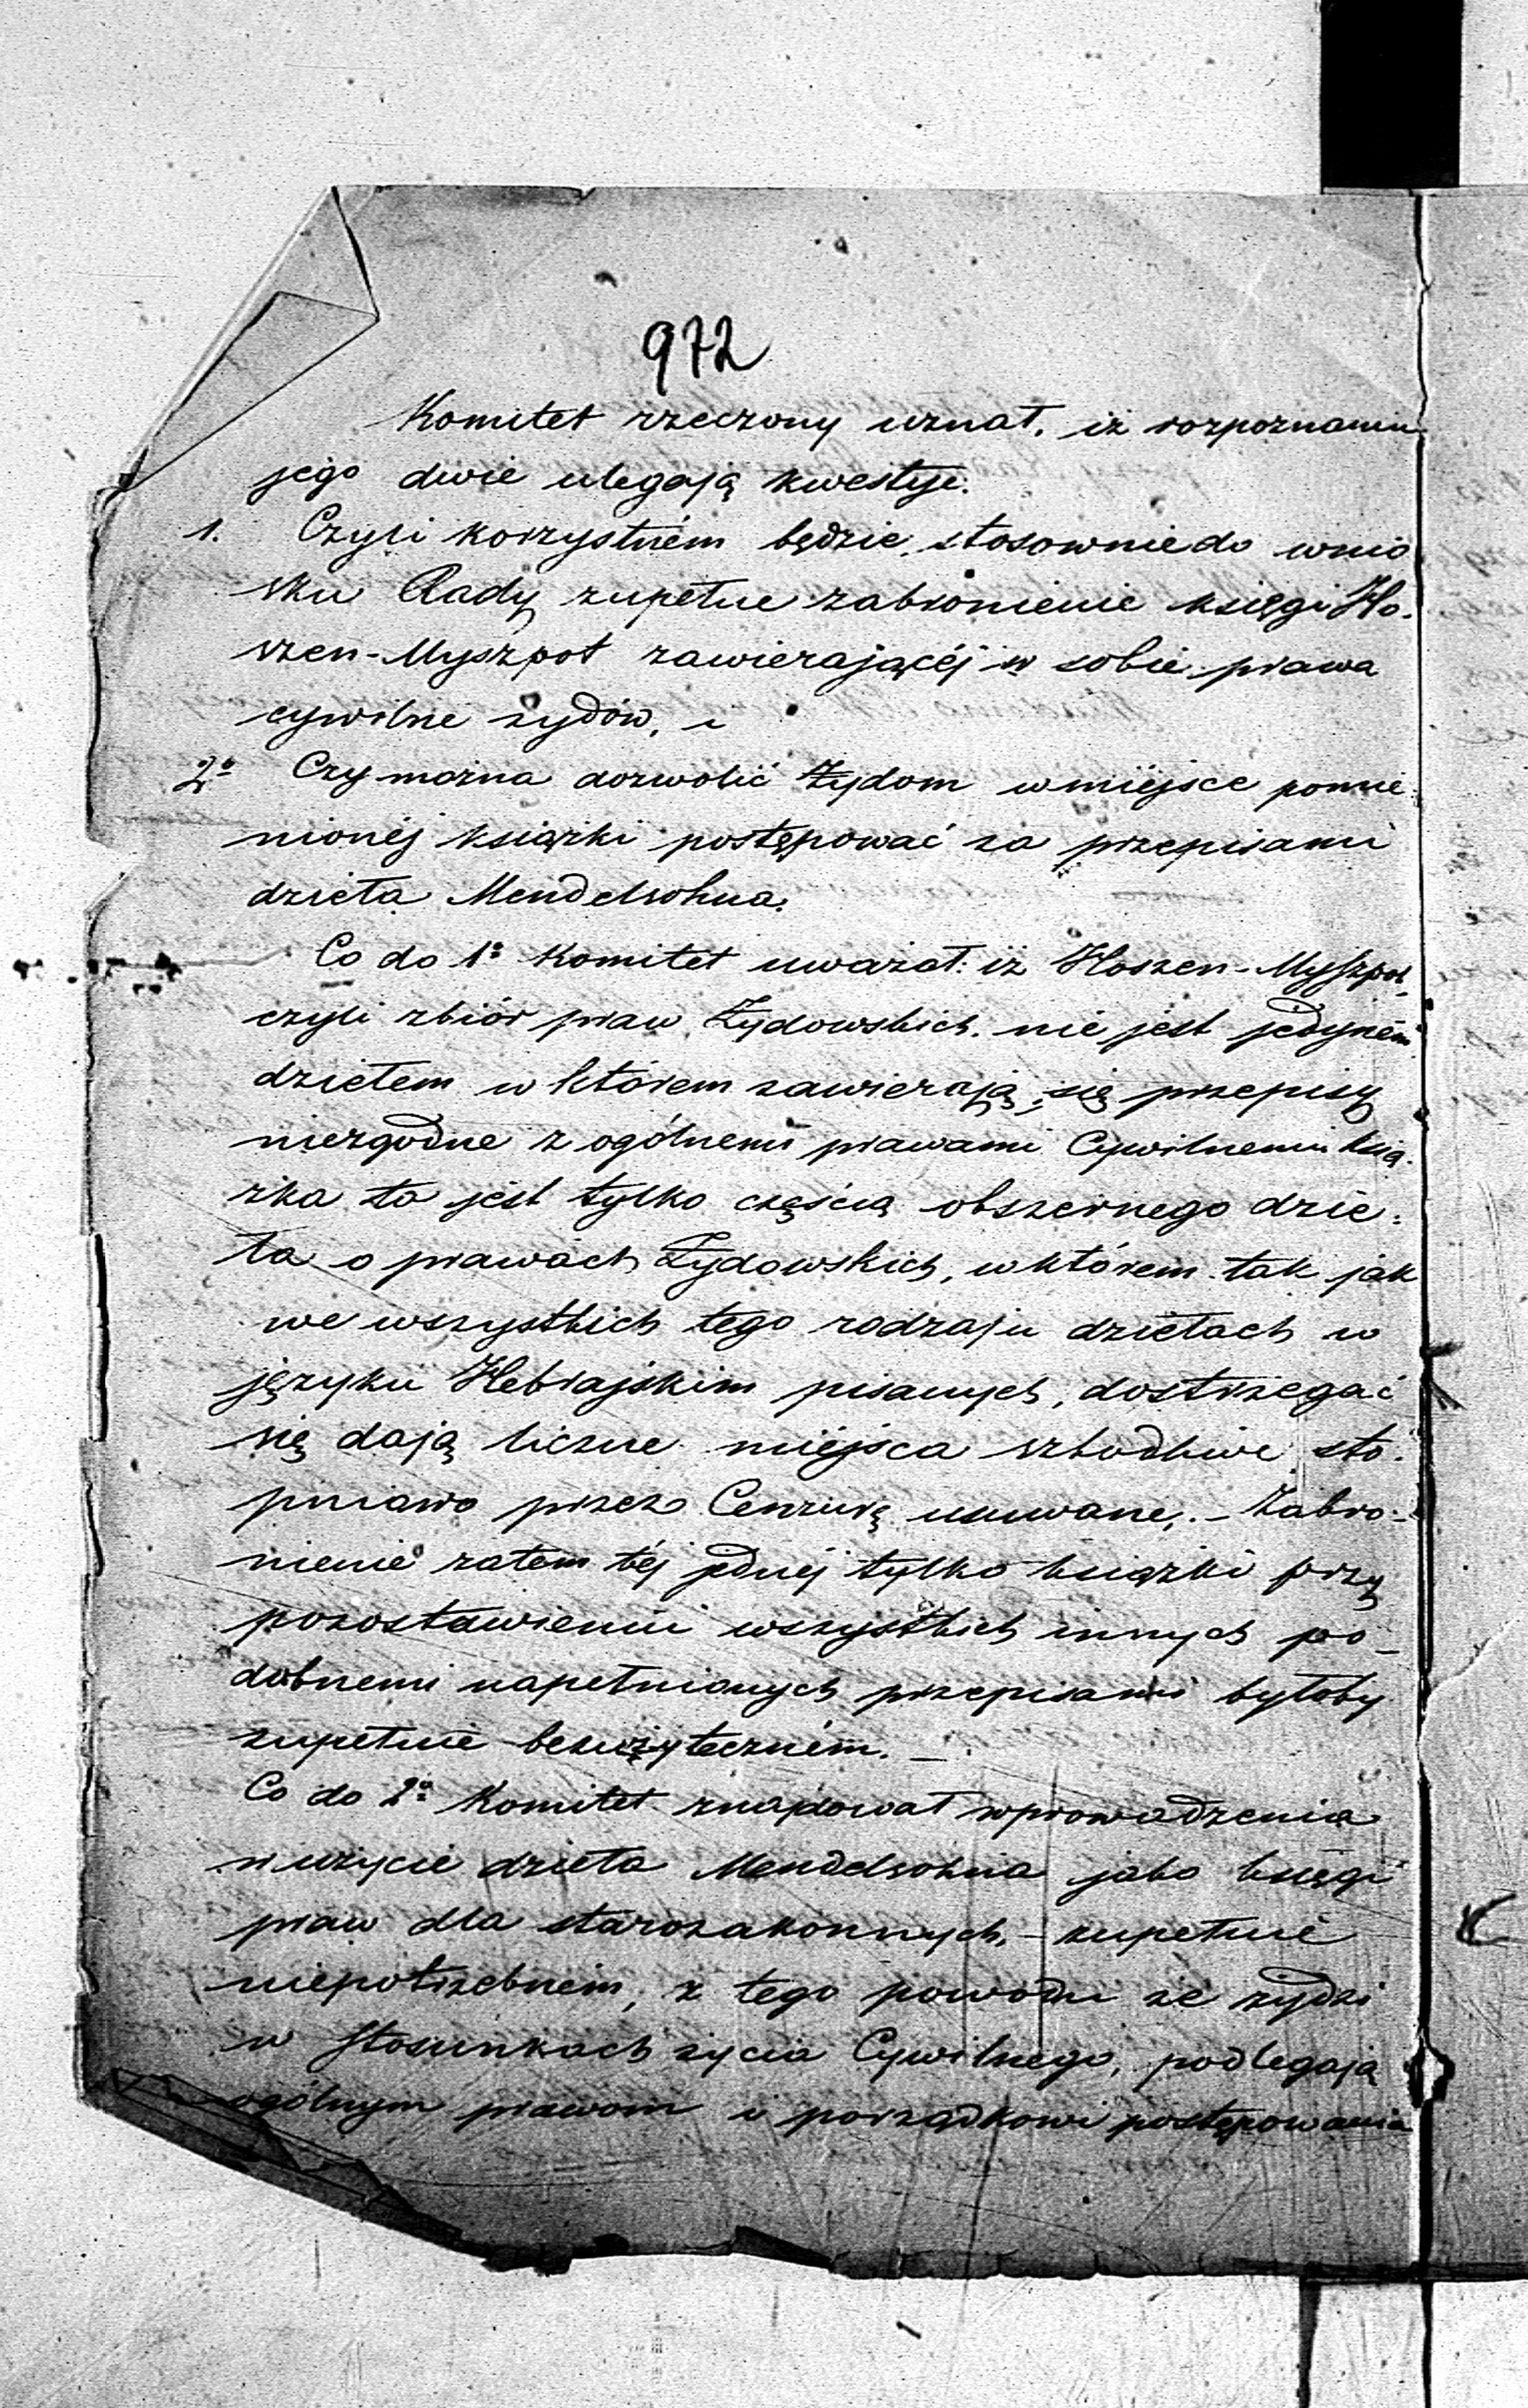 972
Komitet rzeczony uznał, iż rozpoznaniu
jego dwie ulegają kwestye.
1. Czyli korzystném będzie, stosownie do wnio
sku Rady zupełne zabronienie księgi Ho-
szen-Myszpot zawierającéj w sobie prawa
cywilne żydów, i
2º Czy można dozwolić Żydom w miéjsce pomie
nionéj książki postępować za przepisami
dzieła Mendelsohna.
Co do 1º Komitet uważał: iż Hoszen-Myszpot,
czyli zbiór praw Żydowskich, nie jest jedyném
dziełem w którem zawierają się przepisy
niezgodne z ogólnemi prawami Cywilnemi ksią-
żka ta jest tylko częścią obszernego dzie-
ła o prawach Żydowskich, w którem tak jak
we wszystkich tego rodzaju dziełach w
języku Hebrajskim pisanych, dostrzegać
się dają liczne miéjsca szkodliwe sto-
pniowo przez Cenzurę usuwane. – Zabro-
nienie zatem téj jednéj tylko książki przy
pozostawieniu wszystkich innych po-
dobnemi napełnionych przepisami byłoby
zupełnie bezużyteczném. –
Co do 2º Komitet znajdował wprowadzenia
w użycie dzieła Mendelsohna jako księgi
praw dla starozakonnych, – zupełnie
niepotrzebném, z tego powodu że żydzi
w stosunkach życia Cywilnego, podlegają
ogólnym prawom i porządkowi postępowania